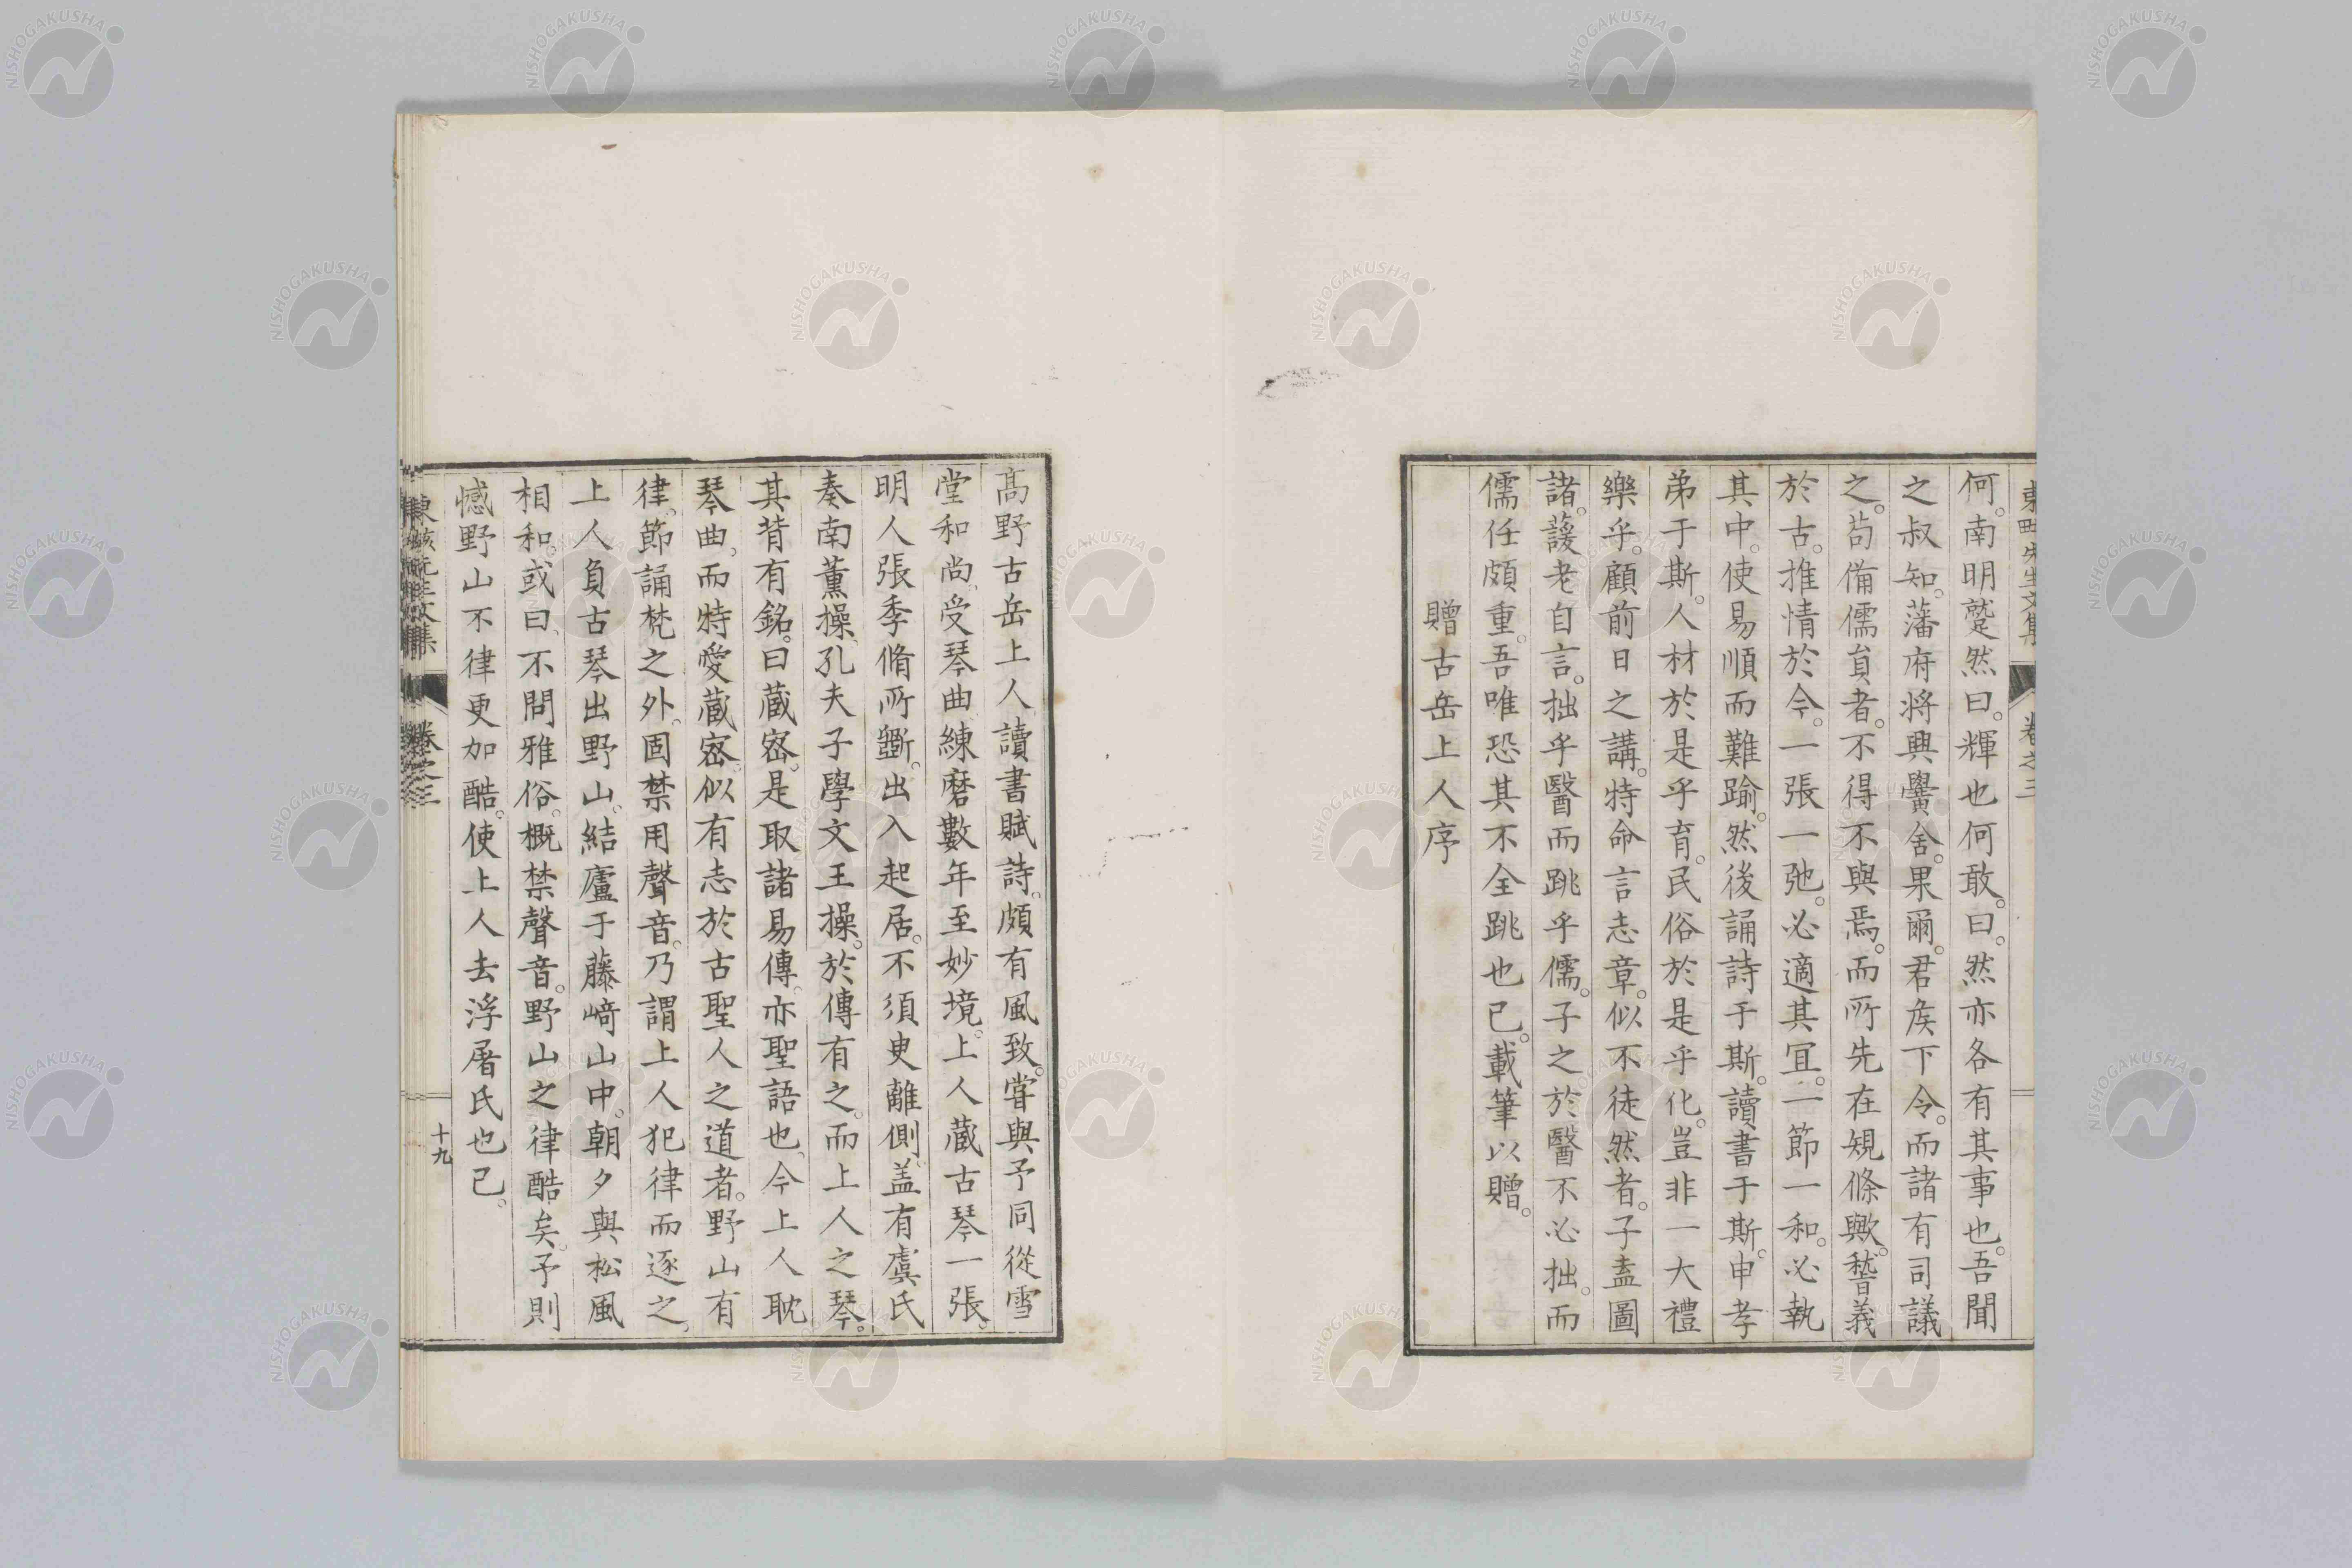 何。南明蹵然曰。輝也何敢。曰。然亦各有其事也。吾聞
之叔知。藩府將興黌舍。果爾。君矦下令。而諸有司議
之。苟備儒負者。不得不與焉。而所先在規條歟。嵆義
於古。推情於今。一張一弛。必適其冝。二節一和。必執
其中。使易順而難踰。然後誦詩于斯。讀書于斯。申孝
弟于斯。人材於是乎育。民俗於是乎化。豈非一大禮
樂乎。顧前日之講。特命言志章。似不徒然者。子盍圖
諸。蘐老自言。拙乎醫而跳乎儒。子之於醫不必拙。而
儒任頗重。吾唯恐其不全跳也已。載筆以贈。
贈古岳上人序
髙野古岳上人讀書賦詩。頗有風致。甞與予同從雪
堂和尚。受琴曲練磨數年至妙境。上人蔵古琴一張。
明人張季脩所斵。出入起居。不須臾離側。盖有虞氏
奏南薫操。孔夫子學文王操。於傳有之。而上人之琴。
其背有銘。曰蔵宻。是取諸易傳。亦聖語也。今上人耽
琴曲。而特愛蔵宻。似有志於古聖人之道者。野山有
律。節誦梵之外。固禁用聲音。乃謂上人犯律而逐之。
上人負古琴出野山。結廬于藤﨑山中。朝夕與松風
相和。或曰。不問雅俗。概禁聲音。野山之律酷矣。予則
憾野山不律更加酷。使上人去浮屠氏也已。
卷之三
十九